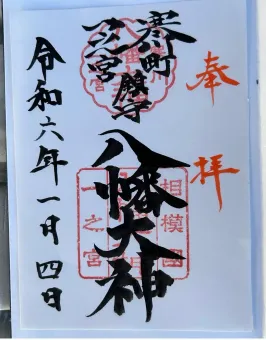 奉拝
寒川町
一之宮
鎮守
八幡大神
令和六年一月四日
相模國
一之宮